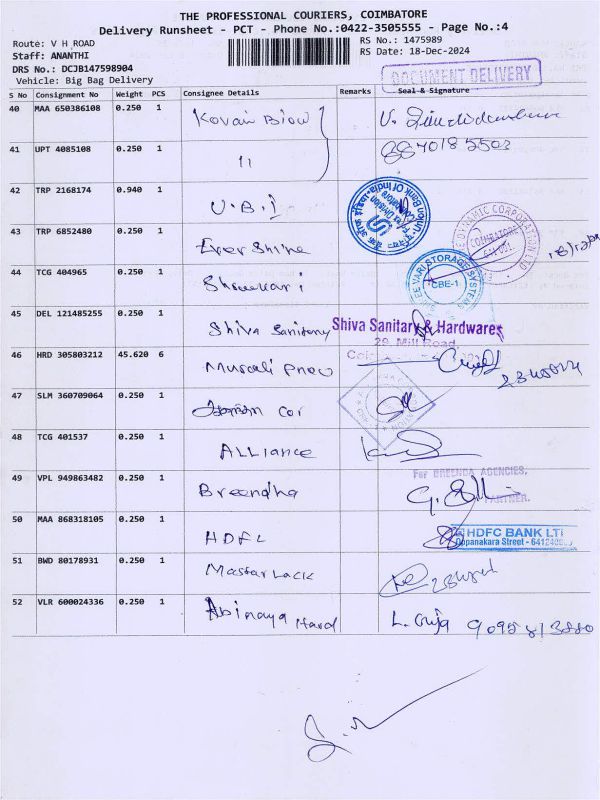 THE PROFESSIONAL COURIERS, COIMBATORE
Delivery Runsheet - PCT - Phone No.:0422-3505555 - Page No.:4
Route: V H ROAD
RS No.: 1475989
Staff: ANANTHI
RS Date: 18-Dec-2024
DRS No.: DCJB147598904
Vehicle: Big Bag Delivery
DOCUMENT DELIVERY
S No Consignment No Weight PCS Consignee Details Remarks Seal & Signature
40 MAA 650386108 0.250 1 Kovai Biow
8870185503
41 UPT 4085108 0.250 1 11
42 TRP 2168174 0.940 1 U.B.I
Union Bank Of India
43 TRP 6852480 0.250 1 Ever Shine
DYNAMIC CORPORATION
COIMBATORE
44 TCG 404965 0.250 1
SHREE VARI STORAGE SYSTEMS
CBE-1
45 DEL 121485255 0.250 1 Shiva Sanitary
Shiva Sanitary & Hardwares
29, Mill Road,
46 HRD 305803212 45.620 6 Murali Pneu
47 SLM 360709064 0.250 1 Car
48 TCG 401537 0.250 1 ALLiance
49 VPL 949863482 0.250 1 Breendha
For BREENDA AGENCIES,
PARTNER.
50 MAA 868318105 0.250 1 HDFC
HDFC BANK LTD
Oppanakara Street -
51 BWD 80178931 0.250 1 Master Lack
52 VLR 600024336 0.250 1 Abinaya Hard
L. Girija 9095813880